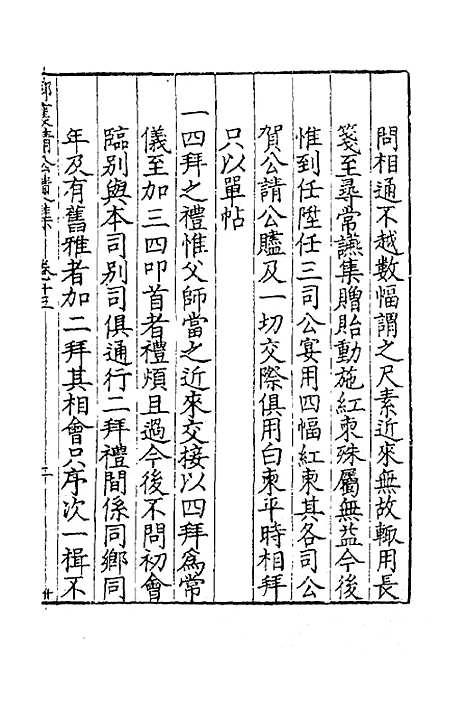 問相通不越數幅謂之尺素近來無故輙用長
箋至尋常讌集贈貽動施紅柬殊屬無益今後
惟到任陞任三司公宴用四幅紅柬其各司公
賀公請公贐及一切交際俱用白柬平時相拜
只以單帖
一四拜之禮惟父師當之近來交接以四拜爲常
儀至加三四叩首者禮煩且過今後不問初會
臨別與本司別司俱通行二拜禮間係同鄉同
年及有舊雅者加二拜其相會只序次一揖不
鄒襄惠公遺集 卷十三